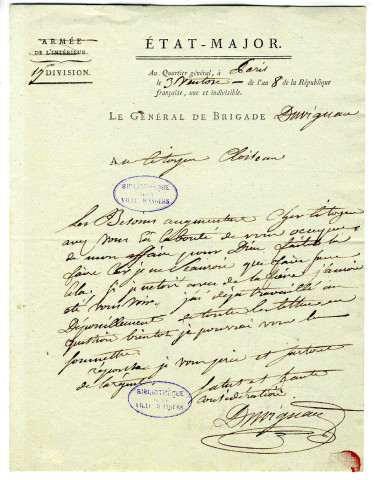 ARMÉE
DE L'INTÉRIEUR.
17e DIVISION.
ÉTAT-MAJOR.
Au Quartier général, à Paris
le 3 Ventose de l'an 8 de la République
française, une et indivisible.
LE GÉNÉRAL DE BRIGADE Duvigneau
Au Citoyen
BIBLIOTHÈQUE
DE LA
VILLE D'ANGERS
Les Besoins augmentent Cher Citoyen
avez vous eu la bonté de vous occuper
de mon affaire pour Dieu faites le
faire Car je ne Saurois que faire sans
Cela. Si je n'etois avec de la fievre j'aurois
été vous voir. j'ai déja travaillé au
Dépouillement de toutes les lettres en
question bientot je pourrai vous le
soumettre
réponse je vous prie et surtout
de l'argent.
Salut et haute
considération
BIBLIOTHÈQUE
DE LA
VILLE D'ANGERS
Duvigneau